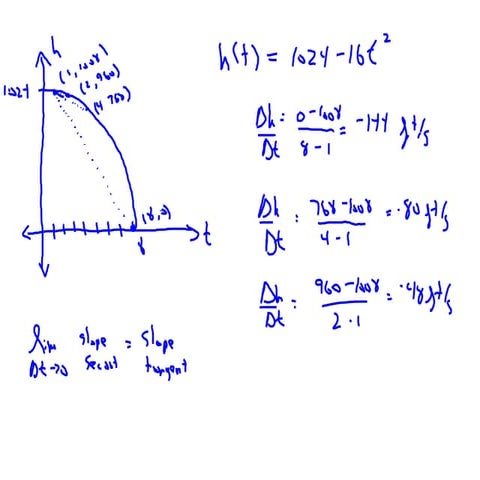 h
h(t) = 1024 - 16t²
(1, 1008)
(2, 960)
(4, 768)
1024
Δh/Δt = (0 - 1008)/(8 - 1) = -144 ft/s
Δh/Δt = (768 - 1008)/(4 - 1) = -80 ft/s
(8, 0)
t
8
Δh/Δt = (960 - 1008)/(2 - 1) = -48 ft/s
lim Δt→0 slope secant = slope tangent